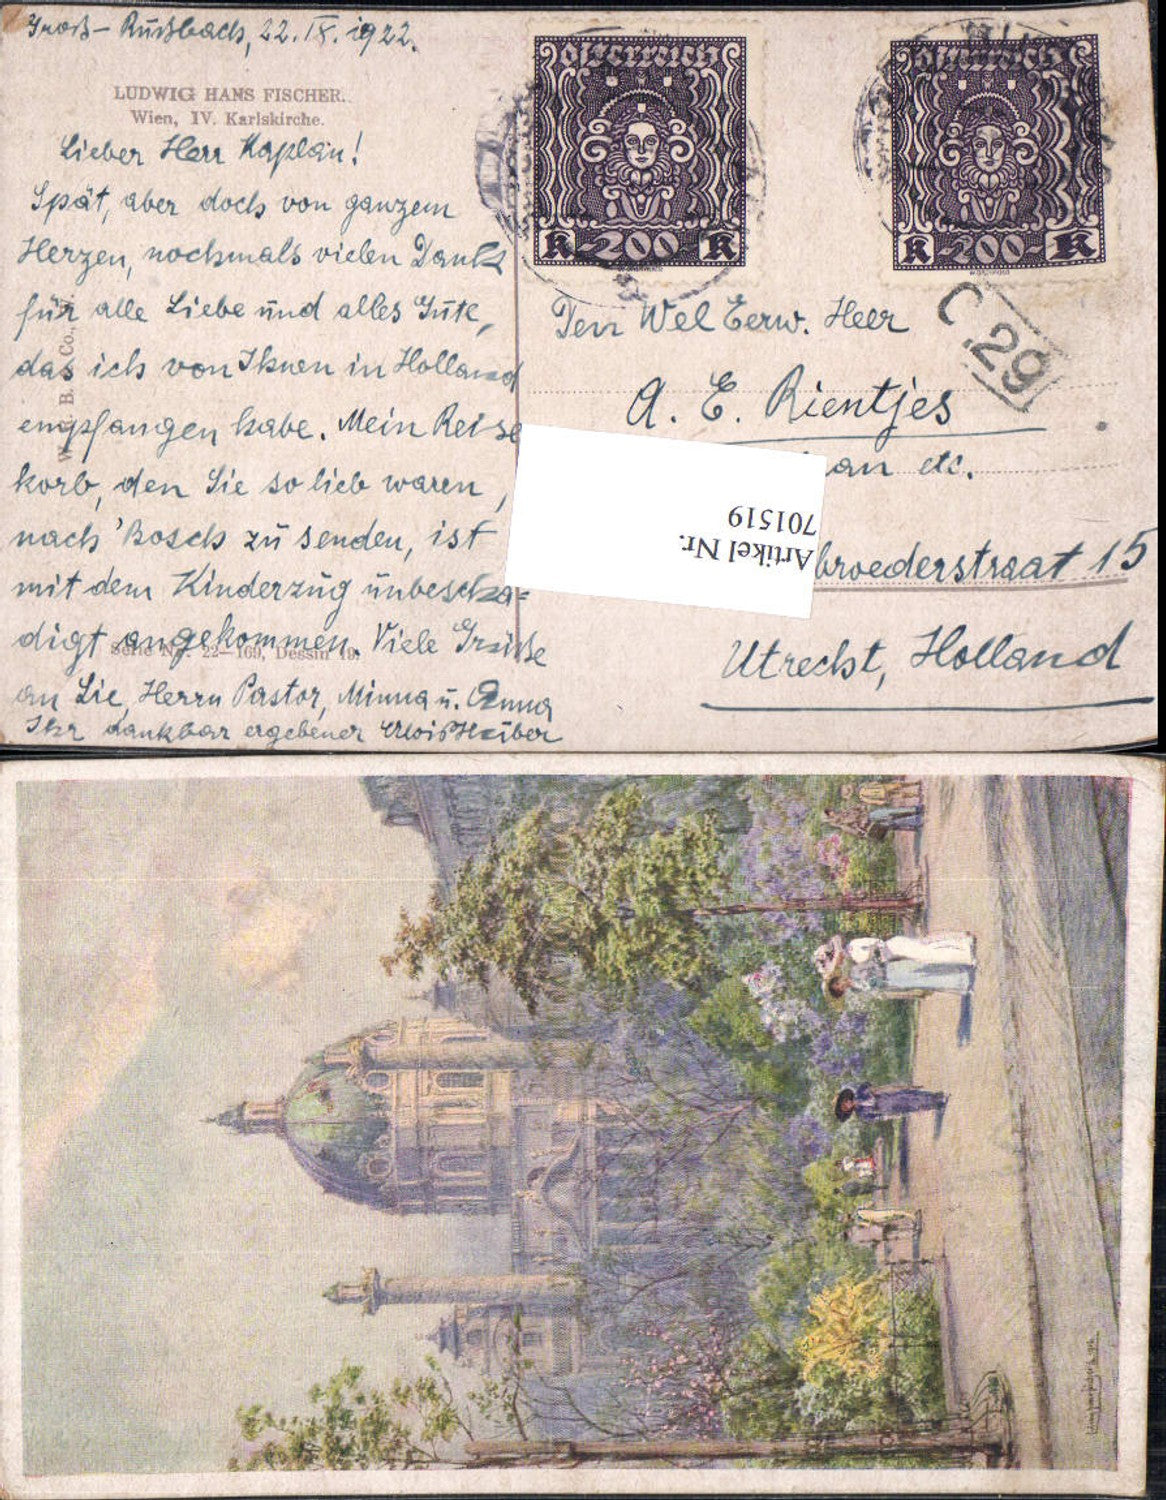 Groß-Rußbach, 22. IX. 1922.
LUDWIG HANS FISCHER.
Wien, IV. Karlskirche.
Lieber Herr Kaplan!
Spät, aber doch von ganzem
Herzen, nochmals vielen Dank
für alle Liebe und alles Gute,
das ich von Ihnen in Holland
empfangen habe. Mein Reise
korb, den Sie so lieb waren,
nach 'Bosch zu senden, ist
mit dem Kinderzug unbeschä-
digt angekommen. Viele Grüße
an Sie, Herrn Pastor, Minna u. Anna
Ihr dankbar ergebener
W. B. Co.,
Serie Nr. 22-169, Dessin 19.
Österreich
K 200 K
Österreich
K 200 K
C.29
Den Wel Eerw. Heer
A. E. Rientjes
an etc.
broederstraat 15
Utrecht, Holland
Artikel Nr.
701519